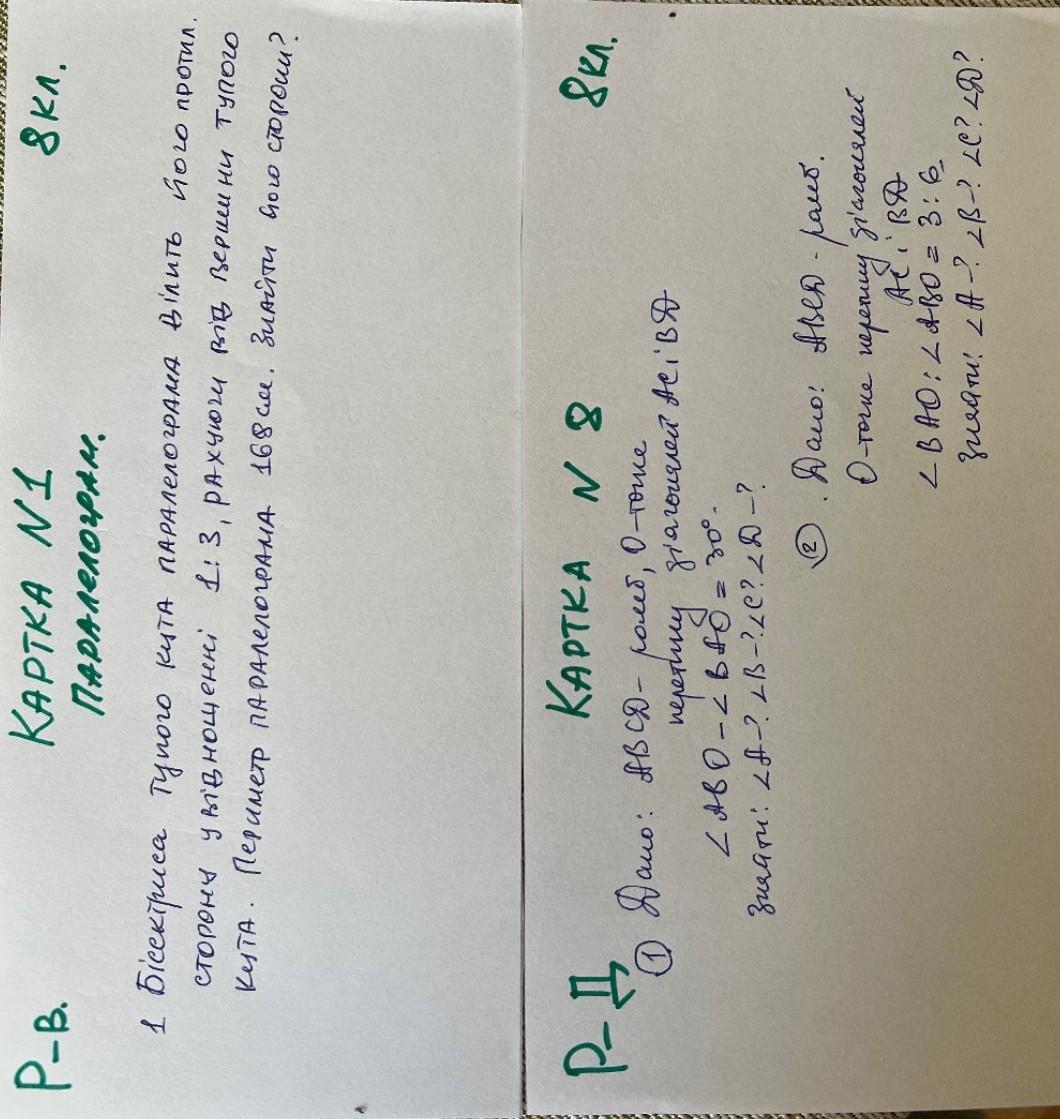 Р-В. КАРТКА N1 8кл.
ПАРАЛЕЛОГРАМ.
1 Бісектриса тупого кута паралелограма ділить його протил.
сторону у відношенні 1:3, рахуючи від вершини тупого
кута. Периметр паралелограма 168 см. Знайти його сторони?
Р-Д КАРТКА N 8 8кл.
① Дано: ABCD - ромб, O-точка
перетину діагоналей AC і BD
∠ABO - ∠BAO = 30°.
Знайти: ∠A-? ∠B-? ∠C? ∠D-?
② . Дано: ABCD - ромб.
O-точка перетину діагоналей
AC і BD
∠BAO : ∠ABO = 3:6
Знайти: ∠A-? ∠B-? ∠C? ∠D?